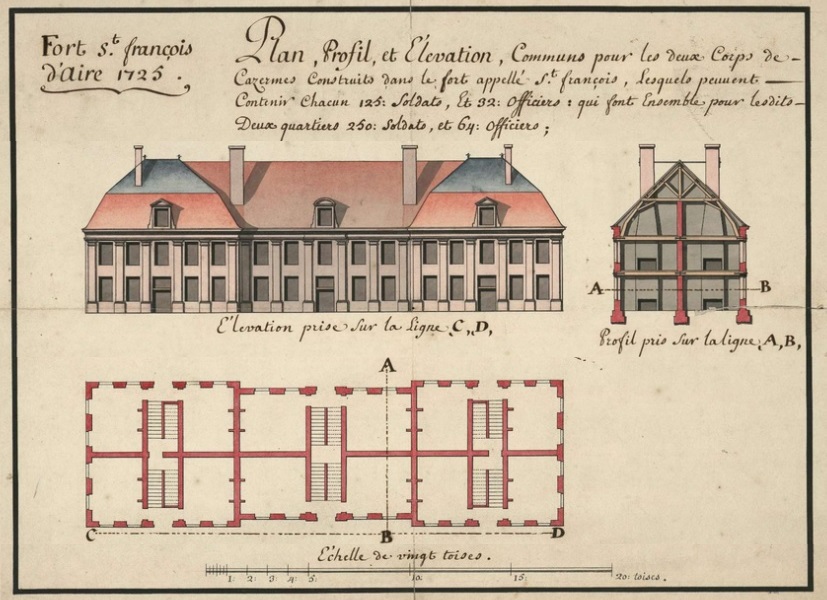 Fort S.t françois
d'Aire 1725.
Plan, Profil, et Élevation, Communs pour les deux Corps de
Cazermes Construits dans le fort appellé S.t françois, Lesquels peuvent
Contenir Chacun 125: Soldats, Et 32: Officiers: qui font Ensemble pour lesdits
Deux quartiers 250: Soldats, et 64: Officiers;
A B
Élevation prise Sur la Ligne C, D,
Profil pris Sur la ligne, A, B,
A
C B D
Échelle de vingt toises.
1: 2: 3: 4: 5: 10: 15: 20: toises.